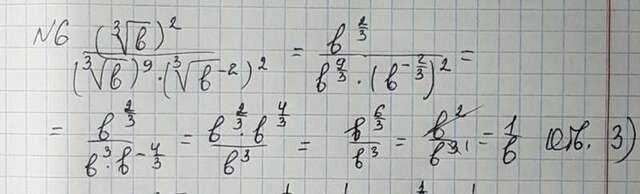 N6 (∛b)² / ((∛b)⁹ · (∛b⁻²)²) = b^(2/3) / (b^(9/3) · (b^(-2/3))²) =
= b^(2/3) / (b³ · b^(-4/3)) = (b^(2/3) · b^(4/3)) / b³ = b^(6/3) / b³ = b² / b³·¹ = 1/b (Отв. 3)